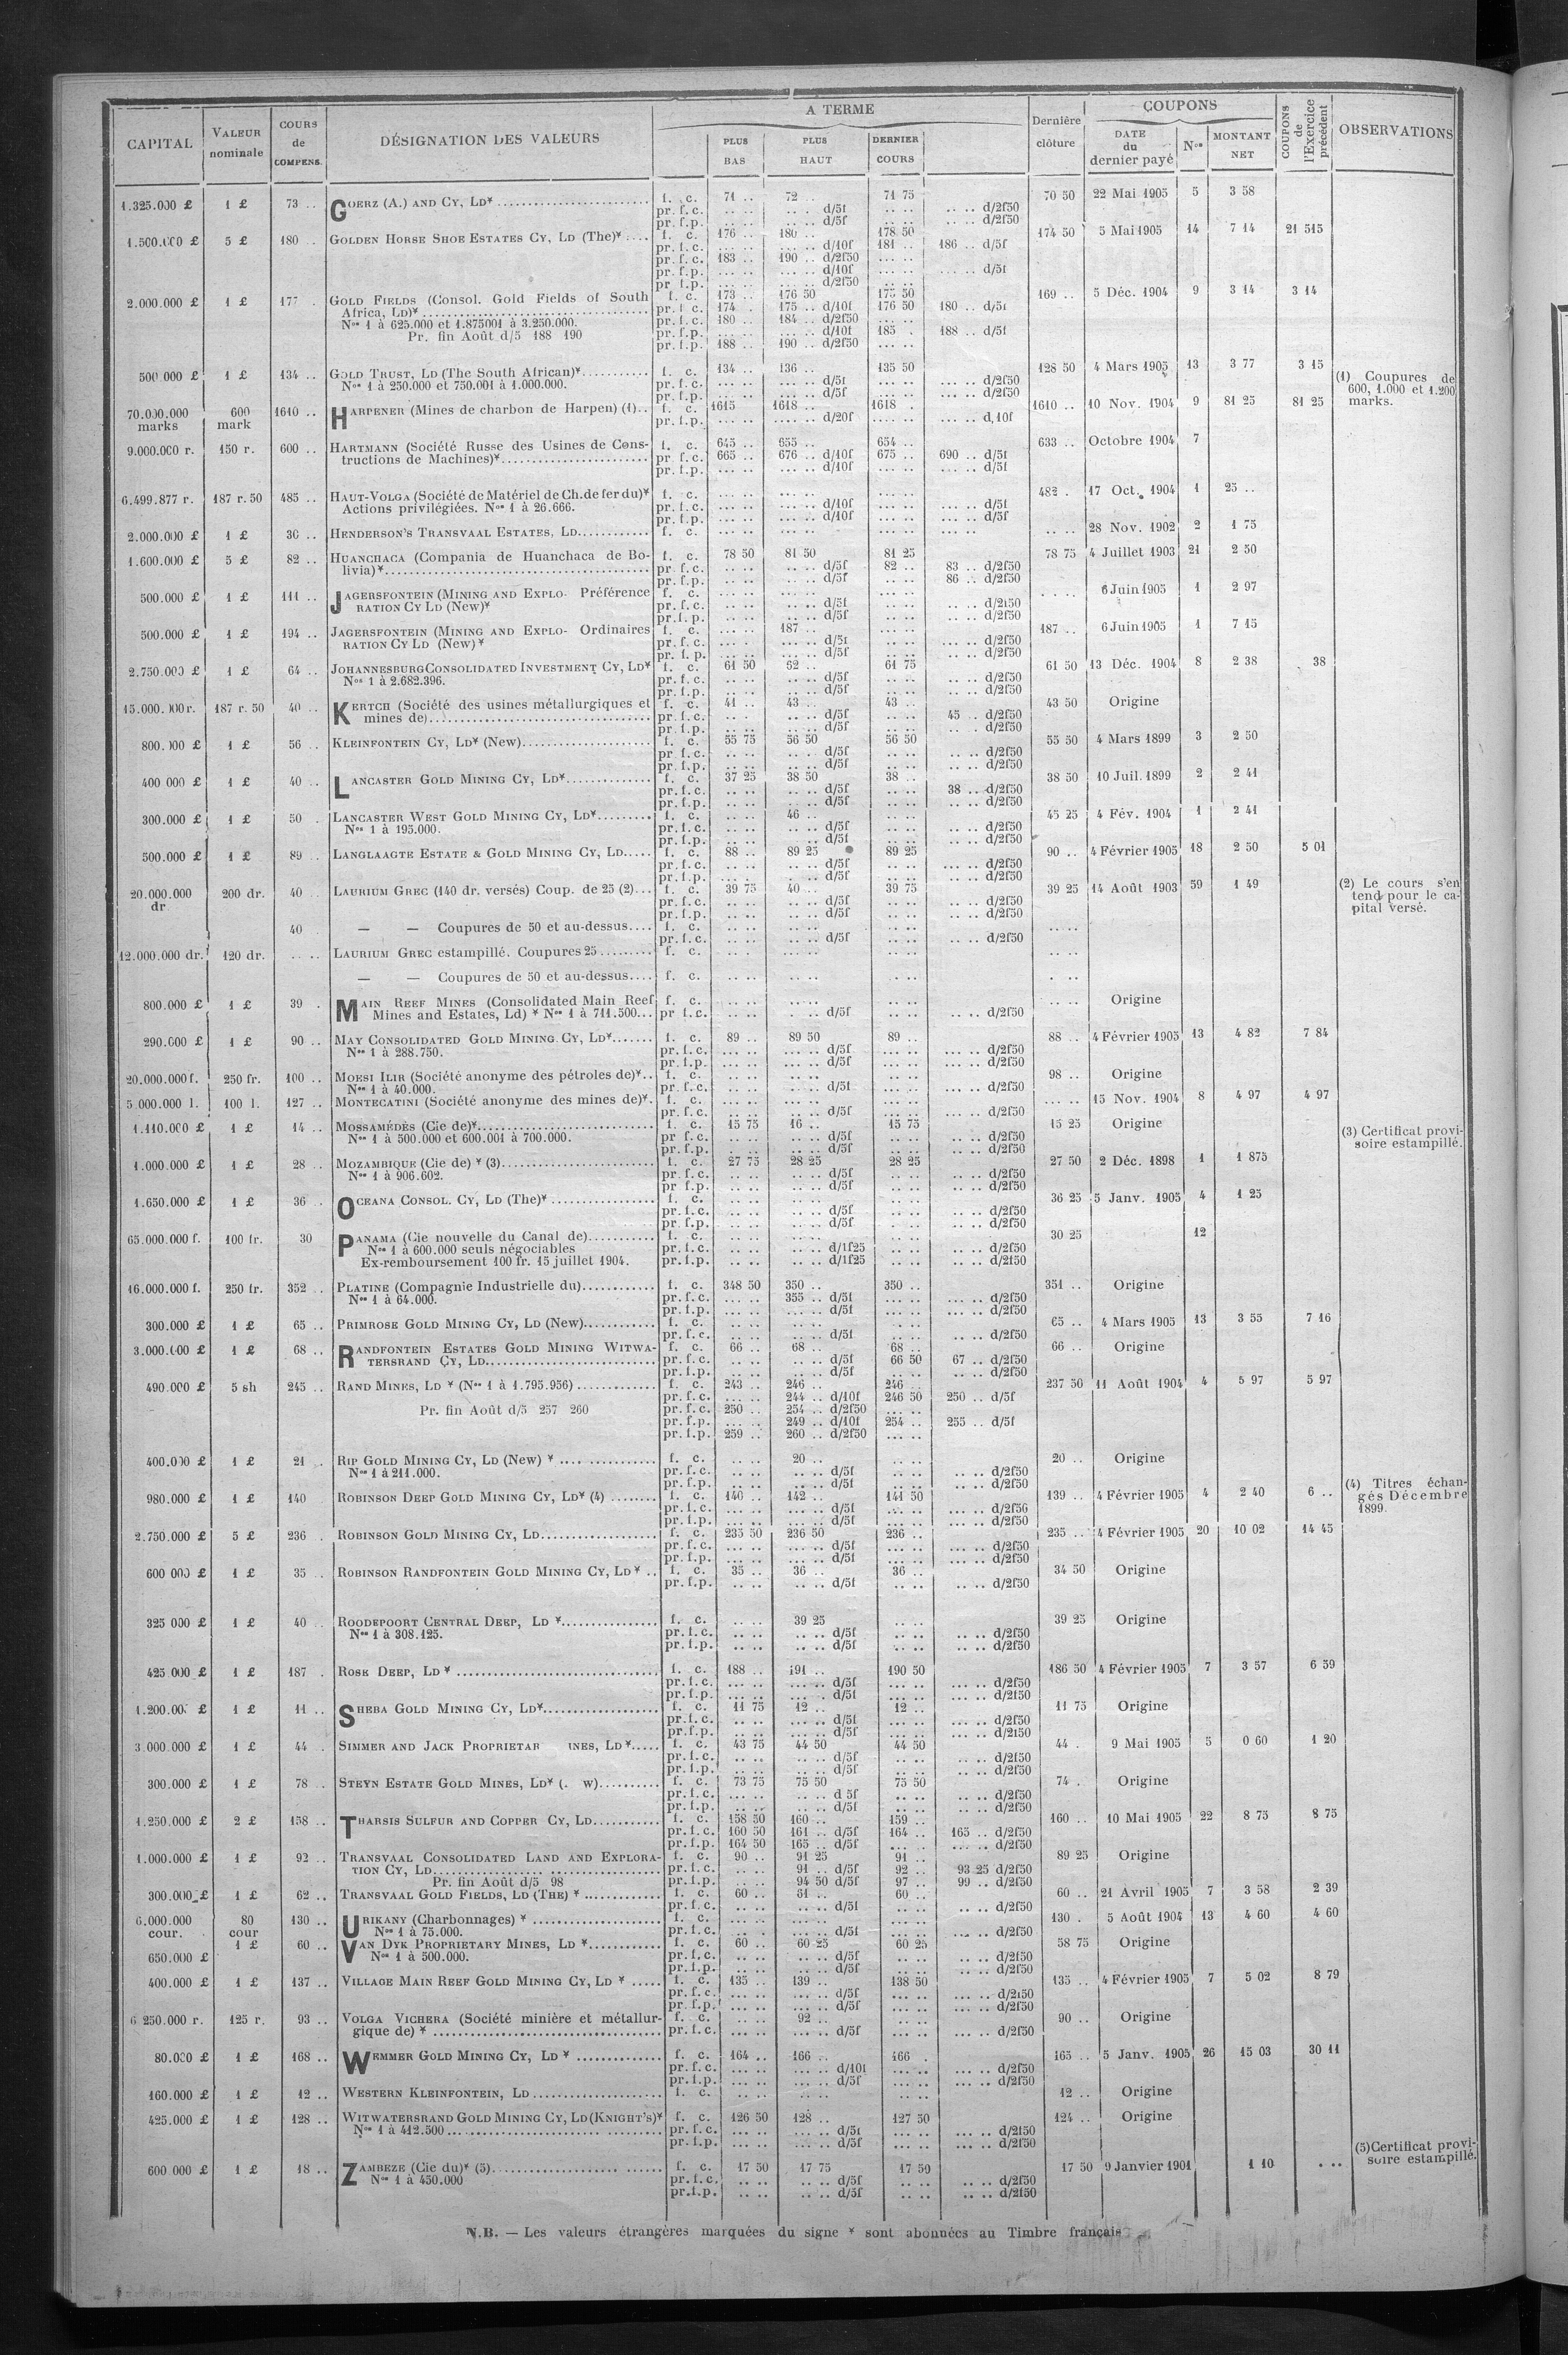 CAPITAL | VALEUR nominale | COURS de COMPENS. | DÉSIGNATION DES VALEURS | A TERME | PLUS BAS | PLUS HAUT | DERNIER COURS | Dernière clôture | COUPONS | DATE du dernier payé | Nos | MONTANT NET | COUPONS de l'Exercice précédent | OBSERVATIONS
1.325.000 £ 1 £ 73 .. GOERZ (A.) AND CY, LD* f. c. 71 .. 72 .. 71 75 70 50 22 Mai 1905 5 3 58
pr. f.c. .. .. .. . d/5f .. .. .. .. d/2f50
pr. f.p. .. .. .. .. d/5f .. .. .. .. d/2f50
1.500.000 £ 5 £ 180 .. GOLDEN HORSE SHOE ESTATES CY, LD (The)* f. c. 176 .. 180 .. 178 50 174 50 5 Mai 1905 14 7 14 21 515
pr. f.c. ... .. ... .. d/10f 181 .. 186 .. d/5f
pr. f.c. 183 .. 190 .. d/2f50 ... ..
pr. f.p. ... .. ... .. d/10f ... .. ... .. d/5f
pr f.p. ... .. ... .. d/2f50 ... ..
2.000.000 £ 1 £ 177 . GOLD FIELDS (Consol. Gold Fields of South f. c. 173 .. 176 50 175 50 169 .. 5 Déc. 1904 9 3 14 3 14
Africa, LD)* pr f c. 174 . 175 .. d/10f 176 50 180 .. d/5f
Nos 1 à 625.000 et 1.875001 à 3.250.000. pr. f.c. 180 .. 184 .. d/2f50 ... ..
Pr. fin Août d/5 188 190 pr. f.p. ... .. ... .. d/10f 185 . 188 .. d/5f
pr. f.p. 188 .. 190 .. d/2f50 ... ..
500.000 £ 1 £ 134 .. GOLD TRUST, LD (The South African)* f. c. 134 .. 136 .. 135 50 128 50 4 Mars 1905 13 3 77 3 15
Nos 1 à 250.000 et 750.001 à 1.000.000. pr. f.c. ... .. ... .. d/5f ... .. ... .. d/2f50
pr. f.p. ... .. ... .. d/5f ... .. ... .. d/2f50
(1) Coupures de 600, 1.000 et 1.200 marks.
70.000.000 marks 600 mark 1610 .. HARPENER (Mines de charbon de Harpen) (1).. f. c. 1615 1618 .. 1618 . 1610 .. 10 Nov. 1904 9 81 25 81 25
pr. f.p. .... .. .... .. d/20f .... .. .... .. d,10f
9.000.000 r. 150 r. 600 .. HARTMANN (Société Russe des Usines de Cons- f. c. 645 .. 655 .. 654 .. 633 .. Octobre 1904 7
tructions de Machines)* pr f.c. 665 .. 676 .. d/10f 675 .. 690 .. d/5f
pr. f.p. ... .. ... .. d/10f ... .. ... .. d/5f
6.499.877 r. 187 r. 50 485 .. HAUT-VOLGA (Société de Matériel de Ch. de fer du)* f. c. ... .. ... .. ... .. 482 . 17 Oct. 1904 1 25 ..
Actions privilégiées. Nos 1 à 26.666. pr. f.c. ... .. ... .. d/10f ... .. ... .. d/5f
pr. f.p. ... .. ... .. d/10f ... .. ... .. d/5f
2.000.000 £ 1 £ 30 .. HENDERSON'S TRANSVAAL ESTATES, LD f. c. ... .. ... .. ... .. .. .. 28 Nov. 1902 2 1 75
1.600.000 £ 5 £ 82 .. HUANCHACA (Compania de Huanchaca de Bo- f. c. 78 50 81 50 81 25 78 75 4 Juillet 1903 21 2 50
livia)* pr f.c. .. .. .. .. d/5f 82 .. 83 .. d/2f50
pr. f.p. .. .. .. .. d/5f .. .. 86 .. d/2f50
500.000 £ 1 £ 111 .. JAGERSFONTEIN (MINING AND EXPLO- Préférence f. c. ... .. ... .. ... .. .. .. 6 Juin 1905 1 2 97
RATION CY LD (New)* pr. f.c. .. .. .. .. d/5f .. .. .. .. d/2f50
pr. f.p. .. .. .. .. d/5f .. .. .. .. d/2f50
500.000 £ 1 £ 194 .. JAGERSFONTEIN (MINING AND EXPLO- Ordinaires f. c. ... .. 187 .. ... .. 187 .. 6 Juin 1905 1 7 15
RATION CY LD (New)* pr. f.c. ... . ... .. d/5f ... .. ... .. d/2f50
pr. f. p. ... .. ... .. d/5f ... .. ... .. d/2f50
2.750.000 £ 1 £ 64 .. JOHANNESBURG CONSOLIDATED INVESTMENT CY, LD* f. c. 61 50 62 .. 61 75 61 50 13 Déc. 1904 8 2 38 . 38
Nos 1 à 2.682.396. pr. f.c. .. .. .. .. d/5f .. .. .. .. d/2f50
pr. f.p. .. .. .. .. d/5f .. .. .. .. d/2f50
15.000.000 r. 187 r. 50 40 .. KERTCH (Société des usines métallurgiques et f. c. 41 .. 43 .. 43 .. 43 50 Origine
mines de) pr f.c. .. . .. .. d/5f .. .. 45 .. d/2f50
pr. f.p. .. .. .. .. d/5f .. .. .. . d/2f50
800.000 £ 1 £ 56 .. KLEINFONTEIN CY, LD* (New) f. c. 55 75 56 50 56 50 55 50 4 Mars 1899 3 2 50
pr f.c. .. .. .. .. d/5f .. .. .. .. d/2f50
pr. f.p. .. .. .. .. d/5f .. .. .. .. d/2f50
400 000 £ 1 £ 40 .. LANCASTER GOLD MINING CY, LD* f. c. 37 25 38 50 38 .. 38 50 10 Juil. 1899 2 2 41
pr. f.c. .. .. .. .. d/5f .. .. 38 .. d/2f50
pr. f.p. .. .. .. .. d/5f .. .. .. .. d/2f50
300.000 £ 1 £ 50 . LANCASTER WEST GOLD MINING CY, LD* f. c. .. .. 46 .. .. .. 45 25 4 Fév. 1904 1 2 41
Nos 1 à 195.000. pr. f.c. .. .. .. .. d/5f .. .. .. .. d/2f50
pr. f.p. .. .. .. .. d/5f .. .. .. .. d/2f50
500.000 £ 1 £ 89 .. LANGLAAGTE ESTATE & GOLD MINING CY, LD f. c. 88 .. 89 25 89 25 90 .. 4 Février 1905 18 2 50 5 01
pr. f.c. .. .. .. .. d/5f .. .. ... .. d/2f50
pr. f.p. ... . .. .. d/5f .. .. ... .. d/2f50
20.000.000 dr 200 dr. 40 .. LAURIUM GREC (140 dr. versés) Coup. de 25 (2) f. c. 39 75 40 .. 39 75 39 25 14 Août 1903 59 1 49
pr. f.c. .. .. .. .. d/5f .. .. .. .. d/2f50
pr. f.p. .. .. .. .. d/5f .. .. .. .. d/2f50
(2) Le cours s'en tend pour le ca- pital versé.
40 . — — Coupures de 50 et au-dessus f. c. .. .. .. .. .. .. .. ..
pr. f.c. .. .. .. .. d/5f .. .. .. .. d/2f50
12.000.000 dr. 120 dr. .. .. LAURIUM GREC estampillé. Coupures 25 f. c. .. . .. .. .. .. .. ..
— — Coupures de 50 et au-dessus f. c. .. .. .. .. .. .. . ..
800.000 £ 1 £ 39 . MAIN REEF MINES (Consolidated Main Reef f. c. .. .. .. .. .. .. .. .. Origine
Mines and Estates, Ld) * Nos 1 à 711.500 pr f.c. .. .. . .. d/5f .. .. .. .. d/2f50
290.000 £ 1 £ 90 .. MAY CONSOLIDATED GOLD MINING CY, LD* f. c. 89 .. 89 50 89 .. 88 .. 4 Février 1905 13 4 82 7 84
Nos 1 à 288.750. pr. f.c. ... .. ... .. d/5f ... .. ... .. d/2f50
pr. f.p. ... .. ... .. d/5f ... .. ... .. d/2f50
20.000.000 f. 250 fr. 100 .. MOESI ILIR (Société anonyme des pétroles de)* f. c. .. .. .. .. .. .. 98 .. Origine
Nos 1 à 40.000. pr. f.c. ... .. ... .. d/5f ... .. ... .. d/2f50
5.000.000 l. 100 l. 127 .. MONTECATINI (Société anonyme des mines de)* f. c. ... .. ... .. ... .. ... .. 15 Nov. 1904 8 4 97 4 97
pr. f.c. .. .. .. .. d/5f ... .. ... .. d/2f50
1.110.000 £ 1 £ 14 .. MOSSAMÉDÈS (Cie de)* f. c. 15 75 16 .. 15 75 15 25 Origine
Nos 1 à 500.000 et 600.001 à 700.000. pr f.c. .. .. .. .. d/5f .. .. .. .. d/2f50
pr f.p. .. .. .. .. d/5f .. .. .. .. d/2f50
(3) Certificat provi- soire estampillé.
1.000.000 £ 1 £ 28 .. MOZAMBIQUE (Cie de) * (3) f. c. 27 75 28 25 28 25 27 50 2 Déc. 1898 1 1 875
Nos 1 à 906.602. pr. f.c. .. .. .. .. d/5f .. .. .. .. d/2f50
pr f.p. .. .. .. .. d/5f .. .. .. .. d/2f50
1.650.000 £ 1 £ 36 . OCEANA CONSOL. CY, LD (The)* f. c. .. .. .. .. .. .. 36 25 5 Janv. 1905 4 1 25
pr. f.c. .. .. .. .. d/5f .. .. .. .. d/2f50
pr f.p. .. .. .. .. d/5f .. .. .. .. d/2f50
65.000.000 f. 100 fr. 30 PANAMA (Cie nouvelle du Canal de) f. c. .. .. .. .. .. .. 30 25 12
Nos 1 à 600.000 seuls négociables pr. f.c. .. .. .. .. d/1f25 .. .. .. .. d/2f50
Ex-remboursement 100 fr. 15 juillet 1904. pr. f.p. .. .. .. .. d/1f25 .. .. .. .. d/2f50
16.000.000 f. 250 fr. 352 .. PLATINE (Compagnie Industrielle du) f. c. 348 50 350 .. 350 .. 351 .. Origine
Nos 1 à 64.000. pr. f.c. ... .. 355 .. d/5f ... .. ... .. d/2f50
pr. f.p. ... .. ... .. d/5f ... .. ... .. d/2f50
300.000 £ 1 £ 65 .. PRIMROSE GOLD MINING CY, LD (New) f. c. .. .. .. .. .. .. 65 .. 4 Mars 1905 13 3 55 7 16
pr. f.c. .. .. .. .. d/5f .. .. .. .. d/2f50
3.000.000 £ 1 £ 68 .. RANDFONTEIN ESTATES GOLD MINING WITWA- f. c. 66 .. 68 .. 68 .. 66 .. Origine
TERSRAND CY, LD pr. f.c. .. .. .. .. d/5f 66 50 67 .. d/2f50
pr. f.p. .. .. .. .. d/5f .. .. .. .. d/2f50
490.000 £ 5 sh 245 .. RAND MINES, LD * (Nos 1 à 1.795.956) f. c. 243 .. 246 .. 246 .. 237 50 11 Août 1904 4 5 97 5 97
pr. f.c. ... .. 244 .. d/10f 246 50 250 .. d/5f
Pr. fin Août d/5 257 260 pr. f.c. 250 .. 254 .. d/2f50 ... ..
pr. f.p. ... .. 249 .. d/10f 254 .. 255 .. d/5f
pr. f.p. 259 .. 260 .. d/2f50 ... ..
400.000 £ 1 £ 21 .. RIP GOLD MINING CY, LD (New) * f. c. .. .. 20 .. .. .. 20 .. Origine
Nos 1 à 211.000. pr. f.c. .. .. .. .. d/5f .. .. .. .. d/2f50
pr. f.p. .. .. .. .. d/5f .. .. .. .. d/2f50
980.000 £ 1 £ 140 ROBINSON DEEP GOLD MINING CY, LD* (4) f. c. 140 .. 142 .. 141 50 139 .. 4 Février 1905 4 2 40 6 ..
pr. f.c. ... .. ... .. d/5f ... .. ... .. d/2f50
pr. f.p. ... .. ... .. d/5f ... .. ... .. d/2f50
(4) Titres échan- gés Décembre 1899.
2.750.000 £ 5 £ 236 . ROBINSON GOLD MINING CY, LD f. c. 235 50 236 50 236 .. 235 .. 4 Février 1905 20 10 02 14 45
pr. f.c. ... .. ... .. d/5f ... .. ... .. d/2f50
pr. f.p. ... .. ... .. d/5f ... .. ... .. d/2f50
600 000 £ 1 £ 35 .. ROBINSON RANDFONTEIN GOLD MINING CY, LD * f. c. 35 .. 36 .. 36 .. 34 50 Origine
pr. f.p. .. .. .. .. d/5f .. .. .. .. d/2f50
325 000 £ 1 £ 40 . ROODEPOORT CENTRAL DEEP, LD * f. c. .. .. 39 25 .. .. 39 25 Origine
Nos 1 à 308.125. pr. f.c. .. .. .. .. d/5f .. .. .. .. d/2f50
pr. f.p. .. .. .. .. d/5f .. .. .. .. d/2f50
425 000 £ 1 £ 187 . ROSE DEEP, LD * f. c. 188 .. 191 .. 190 50 186 50 4 Février 1905 7 3 57 6 59
pr. f.c. ... .. ... .. d/5f ... .. ... .. d/2f50
pr. f.p. ... .. ... . d/5f ... .. ... .. d/2f50
1.200.00 £ 1 £ 11 .. SHEBA GOLD MINING CY, LD* f. c. 11 75 12 .. 12 .. 11 75 Origine
pr. f.c. .. .. ... .. d/5f .. .. ... .. d/2f50
pr. f.p. .. .. ... .. d/5f .. .. ... .. d/2f50
3.000.000 £ 1 £ 44 . SIMMER AND JACK PROPRIETAR INES, LD* f. c. 43 75 44 50 44 50 44 . 9 Mai 1905 5 0 60 1 20
pr. f.c. .. .. .. .. d/5f .. .. .. .. d/2f50
pr. f.p. .. .. .. .. d/5f .. .. .. .. d/2f50
300.000 £ 1 £ 78 . STEYN ESTATE GOLD MINES, LD* (. w) f. c. 73 75 75 50 75 50 74 . Origine
pr. f.c. ... .. .. .. d 5f .. .. .. .. d/2f50
pr. f.p. .. .. .. .. d/5f .. .. .. .. d/2f50
1.250.000 £ 2 £ 158 .. THARSIS SULFUR AND COPPER CY, LD f. c. 158 50 160 .. 159 .. 160 .. 10 Mai 1905 22 8 75 8 75
pr. f.c. 160 50 161 .. d/5f 164 .. 165 .. d/2f50
pr. f.p. 164 50 165 .. d/5f ... .. ... .. d/2f50
1.000.000 £ 1 £ 92 .. TRANSVAAL CONSOLIDATED LAND AND EXPLORA- f. c. 90 .. 91 25 91 .. 89 25 Origine
TION CY, LD pr. f.c. .. .. 91 .. d/5f 92 .. 93 25 d/2f50
Pr. fin Août d/5 98 pr. f.p. .. .. 94 50 d/5f 97 .. 99 .. d/2f50
300.000 £ 1 £ 62 .. TRANSVAAL GOLD FIELDS, LD (THE) * f. c. 60 .. 61 .. 60 .. 60 .. 21 Avril 1905 7 3 58 2 39
pr. f.c. .. .. .. .. d/5f .. .. .. .. d/2f50
6.000.000 cour. 80 cour 130 .. URIKANY (Charbonnages) * f. c. ... .. ... .. ... .. 130 . 5 Août 1904 13 4 60 4 60
Nos 1 à 75.000. pr. f.c. ... .. ... .. d/5f ... .. ... .. d/2f50
650.000 £ 1 £ 60 .. VAN DYK PROPRIETARY MINES, LD * f. c. 60 .. 60 25 60 25 58 75 Origine
Nos 1 à 500.000. pr. f.c. .. .. .. .. d/5f .. .. .. .. d/2f50
pr. f.p. .. .. .. .. d/5f .. .. .. .. d/2f50
400.000 £ 1 £ 137 .. VILLAGE MAIN REEF GOLD MINING CY, LD * f. c. 135 .. 139 .. 138 50 135 .. 4 Février 1905 7 5 02 8 79
pr. f.c. ... .. ... .. d/5f ... .. ... .. d/2f50
pr. f.p. ... .. ... .. d/5f ... .. ... .. d/2f50
6 250.000 r. 125 r. 93 .. VOLGA VICHERA (Société minière et métallur- f. c. .. .. 92 .. .. .. 90 .. Origine
gique de) * pr. f.c. ... .. ... .. d/5f ... .. ... .. d/2f50
80.000 £ 1 £ 168 .. WEMMER GOLD MINING CY, LD * f. c. 164 .. 166 .. 166 . 165 .. 5 Janv. 1905 26 15 03 30 11
pr. f.c. ... .. ... .. d/10f ... .. ... .. d/2f50
pr. f.p. ... .. ... .. d/5f ... .. ... .. d/2f50
160.000 £ 1 £ 12 .. WESTERN KLEINFONTEIN, LD f. c. .. .. .. .. .. .. 12 .. Origine
425.000 £ 1 £ 128 .. WITWATERSRAND GOLD MINING CY, LD (KNIGHT'S)* f. c. 126 50 128 .. 127 50 124 .. Origine
Nos 1 à 412.500 pr. f.c. ... .. ... .. d/5f ... .. ... .. d/2f50
pr. f.p. ... .. ... .. d/5f ... .. ... .. d/2f50
(5) Certificat provi- soire estampillé.
600 000 £ 1 £ 18 .. ZAMBEZE (Cie du)* (5) f. c. 17 50 17 75 17 50 17 50 9 Janvier 1901 1 10 . ..
Nos 1 à 450.000 pr. f.c. .. .. .. .. d/5f .. .. .. .. d/2f50
pr. f.p. .. .. .. .. d/5f .. .. .. .. d/2f50
N.B. — Les valeurs étrangères marquées du signe * sont abonnées au Timbre français